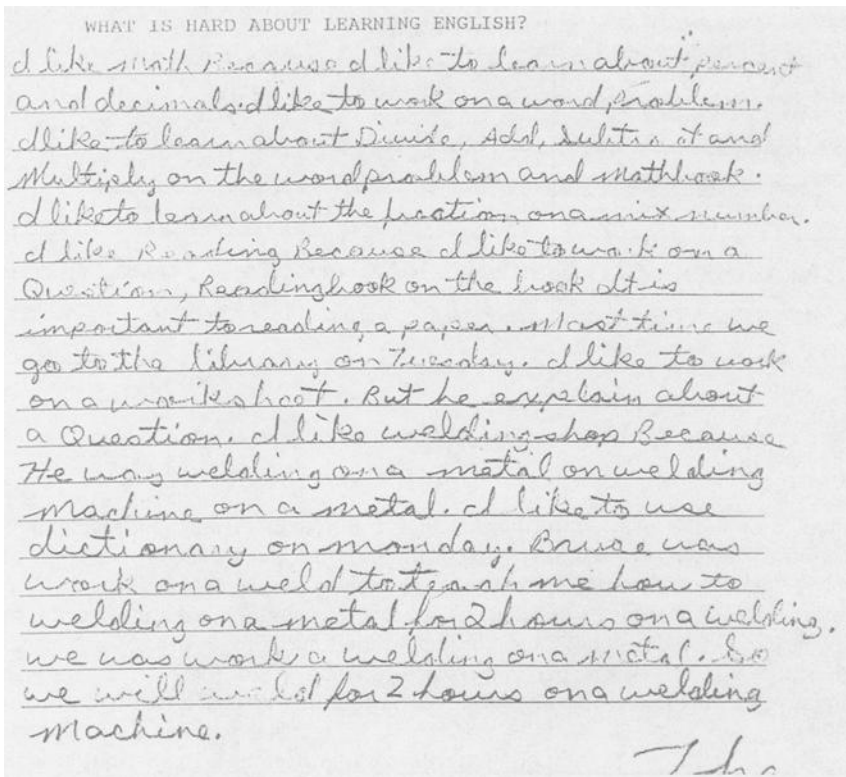 WHAT IS HARD ABOUT LEARNING ENGLISH?
I like Math Because I like to learn about percent
and decimals. I like to work on a word problem.
I like to learn about Divide, Add, Subtract and
Multiply on the word problem and Mathbook.
I like to learn about the fraction on a mix number.
I like Reading Because I like to work on a
Question, Reading book on the book It is
important to reading a paper. Most time we
go to the library on Tuesday. I like to work
on a worksheet. But he explain about
a Question. I like welding shop Because
He was welding on a metal on welding
machine on a metal. I like to use
dictionary on monday. Bruce was
work on a weld to teach me how to
welding on a metal for 2 hours on a welding.
we was work a welding on a metal. So
we will weld for 2 hours on a welding
machine.